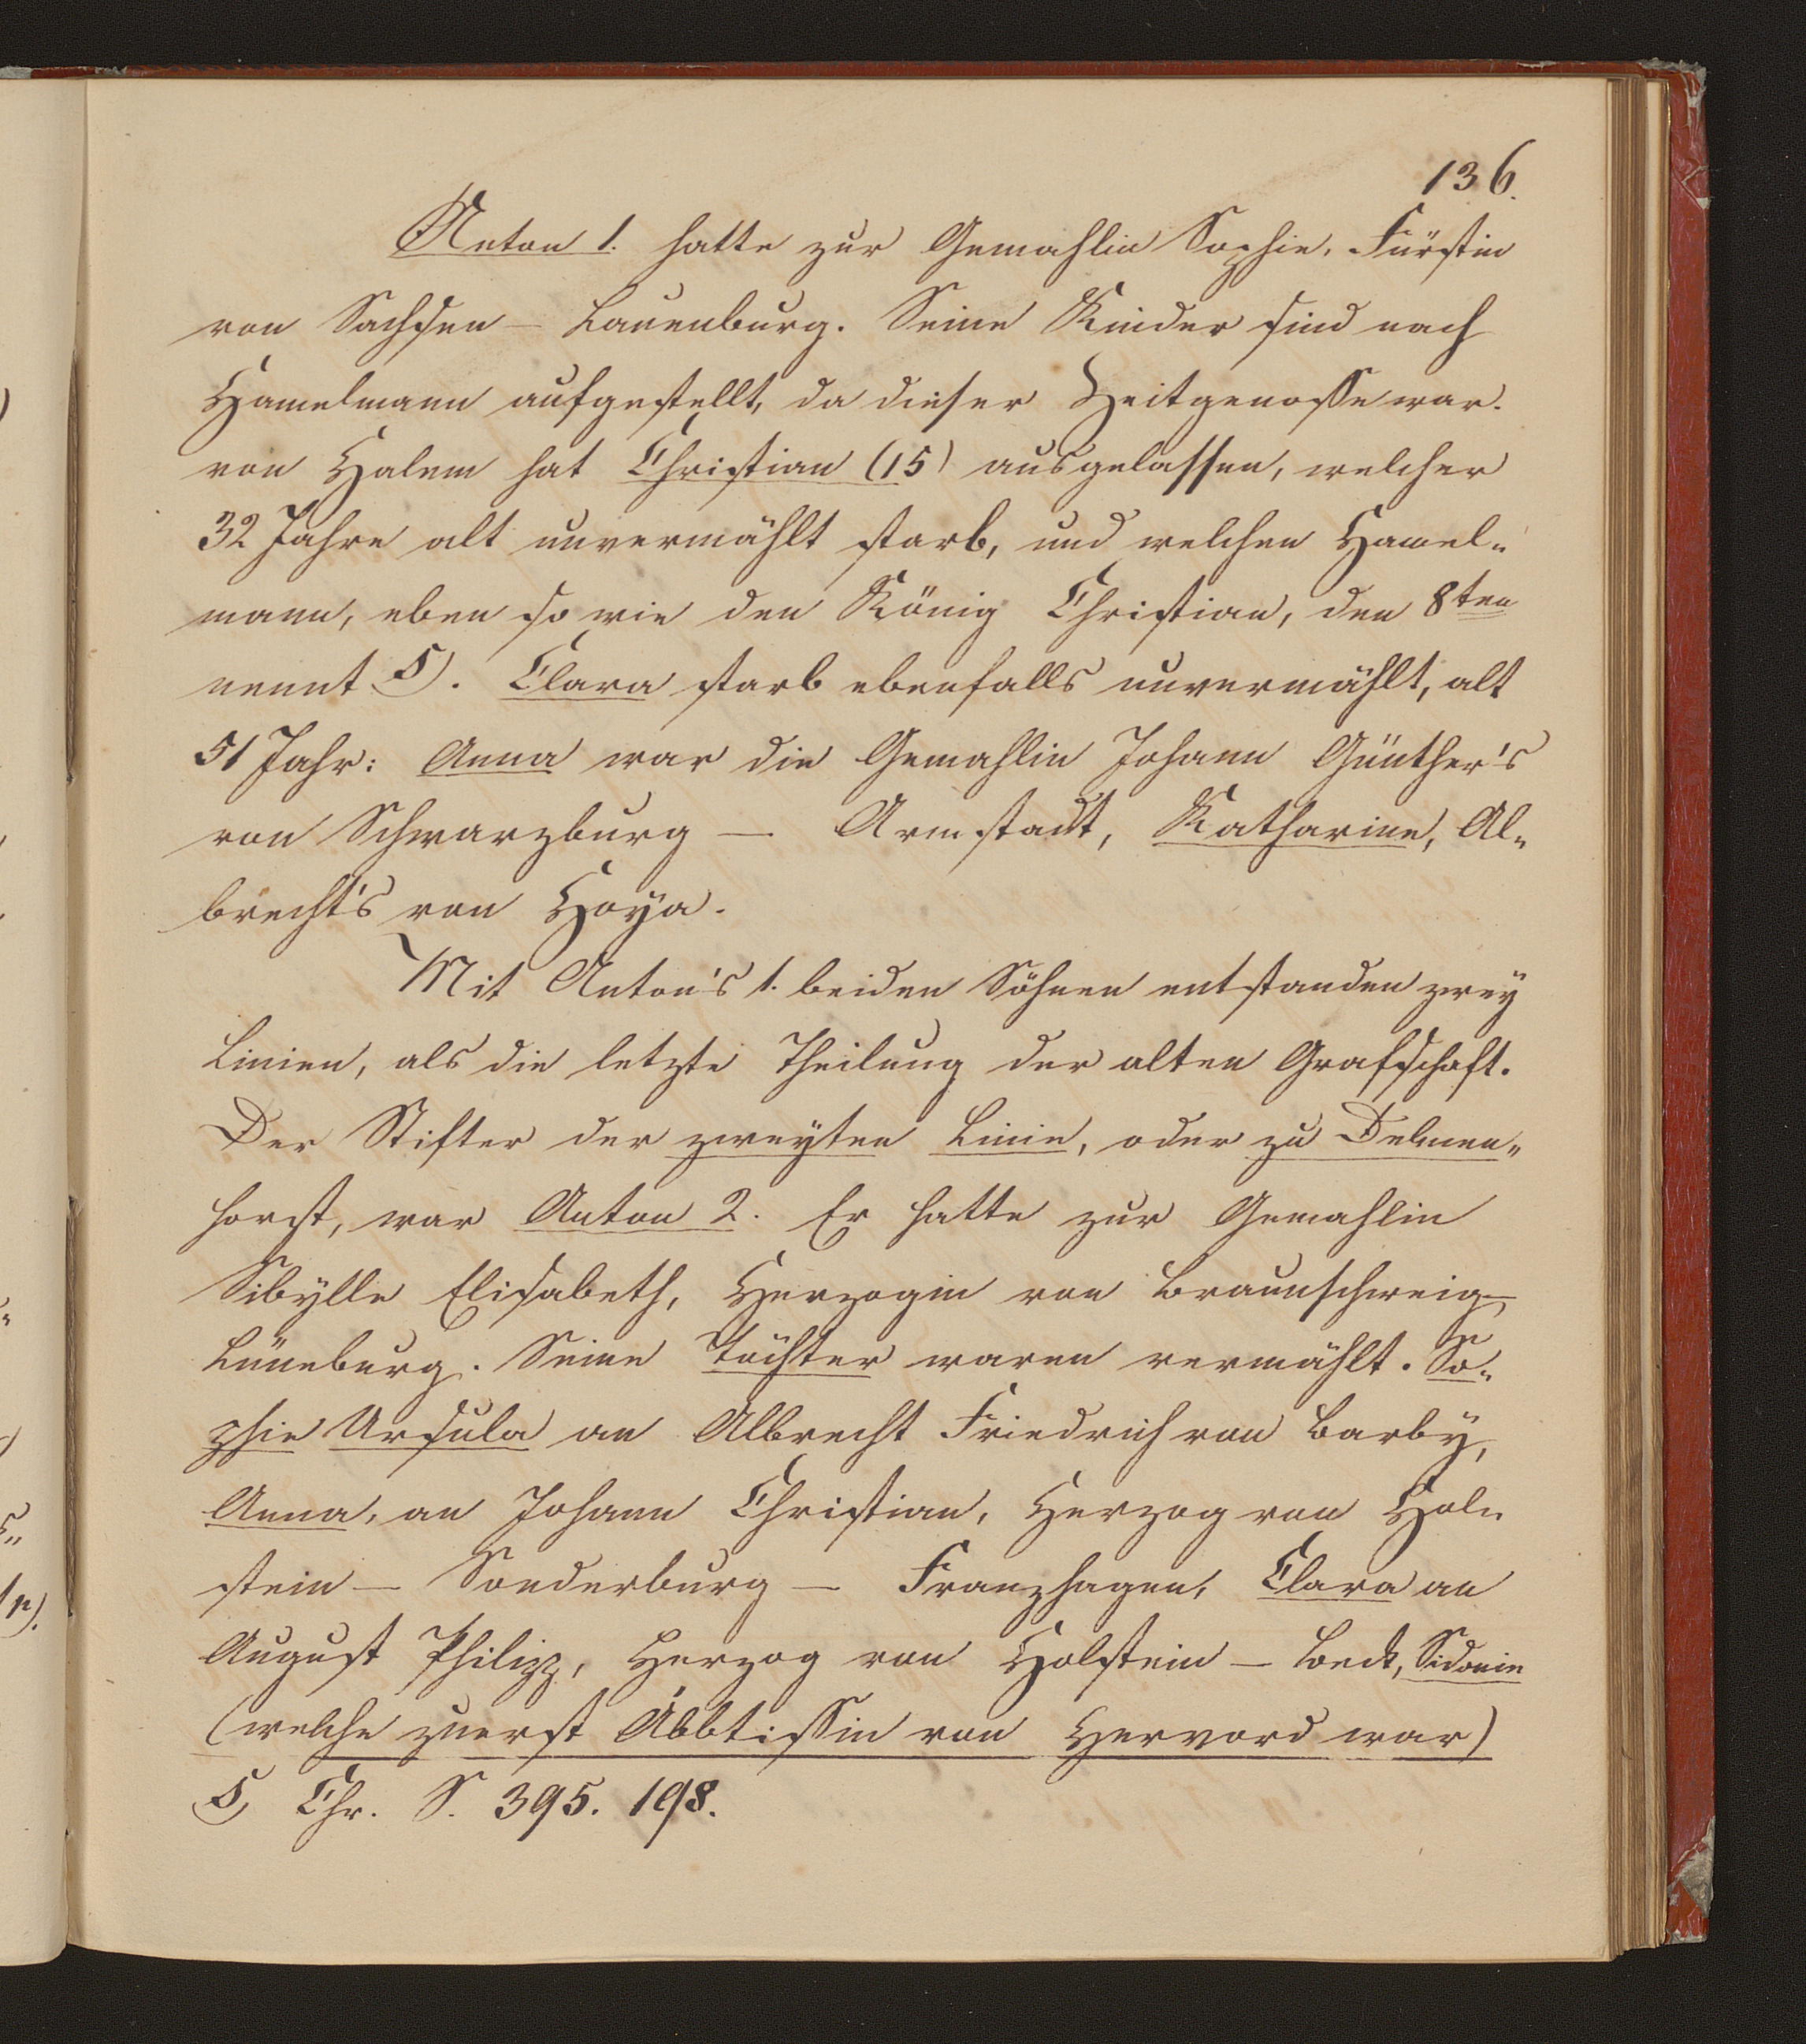 136.
Anton 1. hatte zur Gemahlin Sophie, Fürstin
von Sachsen – Lauenburg. Seine Kinder sind nach
Hamelmann aufgestellt, da dieser Zeitgenosse war.
von Halem hat Christian (15) ausgelassen, welcher
32 Jahre alt unvermählt starb, und welchen Hamel„
mann, eben so wie den König Christian, den 8ten
nennt 5). Clara starb ebenfalls unvermählt, alt
51 Jahr: Anna war die Gemahlin Johann Günther's
von Schwarzburg – Arnstadt, Katharine, Al„
brecht's von Hoÿa.
Mit Anton's 1. beiden Söhnen entstanden zweÿ
Linien, als die letzte Theilung der alten Grafschaft.
Der Stifter der zweÿten Linie, oder zu Delmen„
horst, war Anton 2. Er hatte zur Gemahlin
Sibÿlle Elisabeth, Herzogin von Braunschweig–
Lüneburg. Seine Töchter waren vermählt. So„
phie Ursula an Albrecht Friedrich von Barbÿ,
Anna, an Johann Christian, Herzog von Hol„
stein – Sonderburg – Franzhagen, Clara an
August Philipp, Herzog von Holstein – Beck, Sidonie
(welche zuerst Äbbtissin von Hervord war)
5) Chr. S. 395. 198.